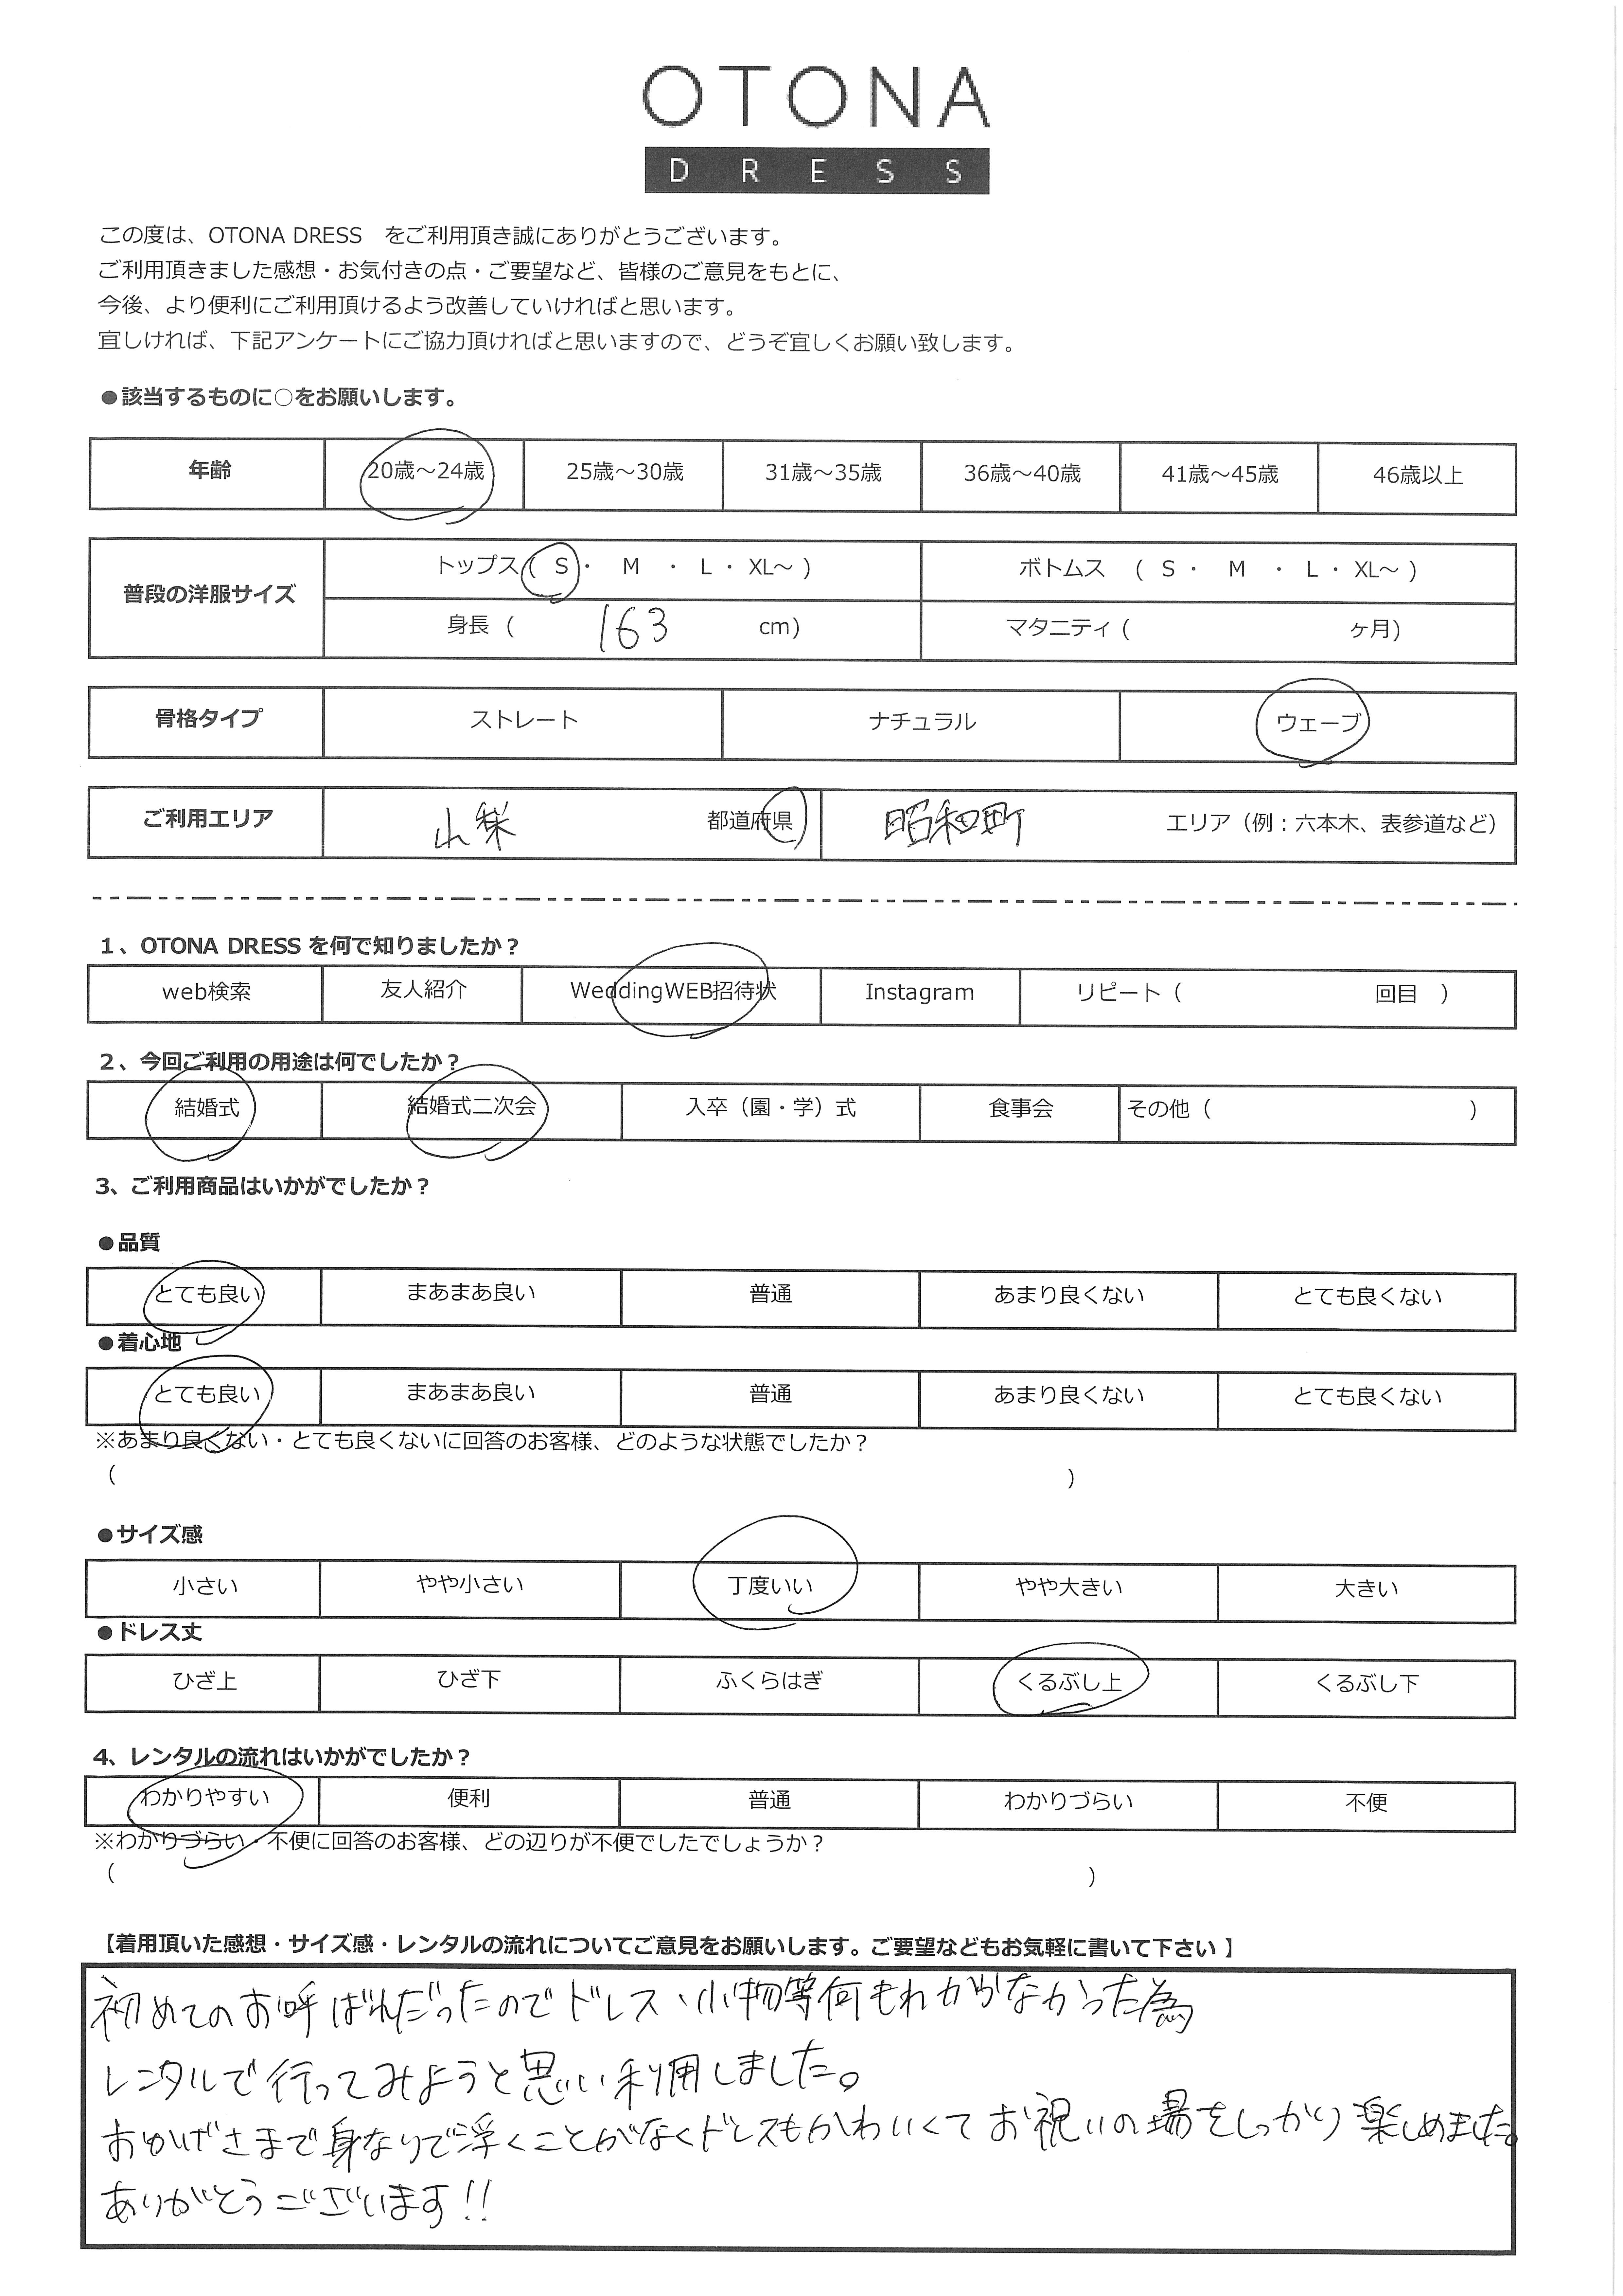 OTONA
DRESS
この度は、OTONA DRESS　をご利用頂き誠にありがとうございます。
ご利用頂きました感想・お気付きの点・ご要望など、皆様のご意見をもとに、
今後、より便利にご利用頂けるよう改善していければと思います。
宜しければ、下記アンケートにご協力頂ければと思いますので、どうぞ宜しくお願い致します。
●該当するものに○をお願いします。
年齢 20歳～24歳 25歳～30歳 31歳～35歳 36歳～40歳 41歳～45歳 46歳以上
普段の洋服サイズ トップス（ S ・ M ・ L ・ XL～ ） ボトムス （ S ・ M ・ L ・ XL～ ）
身長（ 163 cm） マタニティ（ ヶ月）
骨格タイプ ストレート ナチュラル ウェーブ
ご利用エリア 山梨 都道府県 昭和町 エリア（例：六本木、表参道など）
1、OTONA DRESS を何で知りましたか？
web検索 友人紹介 WeddingWEB招待状 Instagram リピート（ 回目 ）
2、今回ご利用の用途は何でしたか？
結婚式 結婚式二次会 入卒（園・学）式 食事会 その他（ ）
3、ご利用商品はいかがでしたか？
●品質
とても良い まあまあ良い 普通 あまり良くない とても良くない
●着心地
とても良い まあまあ良い 普通 あまり良くない とても良くない
※あまり良くない・とても良くないに回答のお客様、どのような状態でしたか？
（ ）
●サイズ感
小さい やや小さい 丁度いい やや大きい 大きい
●ドレス丈
ひざ上 ひざ下 ふくらはぎ くるぶし上 くるぶし下
4、レンタルの流れはいかがでしたか？
わかりやすい 便利 普通 わかりづらい 不便
※わかりづらい・不便に回答のお客様、どの辺りが不便でしたでしょうか？
（ ）
【着用頂いた感想・サイズ感・レンタルの流れについてご意見をお願いします。ご要望などもお気軽に書いて下さい】
初めてのお呼ばれだったのでドレス、小物等何もわからなかった為
レンタルで行ってみようと思い利用しました。
おかげさまで身なりで浮くことがなくドレスもかわいくてお祝いの場をしっかり楽しめました。
ありがとうございます!!